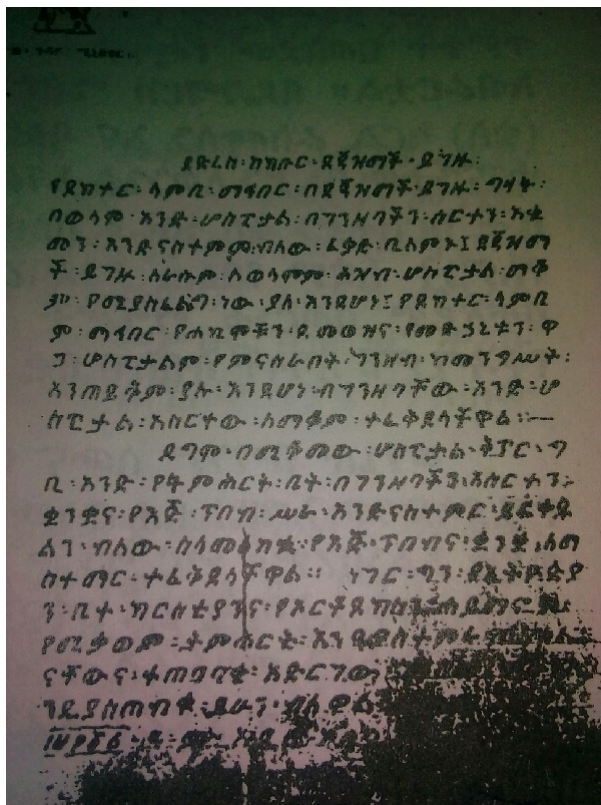 ይድረስ፡ከክቡር፡ደጃዝማች፡ይገዙ፡
የዶክተር፡ላምቢ፡ማኅበር፡በደጃዝማች፡ይገዙ፡ግዛት፡
በወላሞ፡አንድ፡ሆስፒታል፡በገንዘባችን፡ሰርተን፡አቁ
መን፡እንድናስተምም፡ብለው፡ፈቃድ፡ቢለምኑ፤ደጃዝማ
ች፡ይገዙ፡ለራሱም፡ለወላሞም፡ሕዝብ፡ሆስፒታል፡ማቆ
ም፡የሚያስፈልግ፡ነው፡ያለ፡እንደሆነ፤የዶክተር፡ላምቢ
ም፡ማኅበር፡የሐኪሞቹን፡ደመወዝና፡የመድኃኒቱን፡ዋ
ጋ፡ሆስፒታልም፡የምናሰራበት፡ገንዘብ፡ከመንግሥት፡
አንጠይቅም፡ያሉ፡እንደሆነ፡በገንዘባቸው፡አንድ፡ሆ
ስፒታል፡አሰርተው፡ለማቆም፡ተፈቅዶላችዋል፡፡—
ደግሞ፡በሚቆመው፡ሆስፒታል፡ቅጥር፡ግ
ቢ፡አንድ፡የትምሕርት፡ቤት፡በገንዘባችን፡አሰርተን፡
ቋንቋና፡የእጅ፡ጥበብ፡ሥራ፡እንድናስተምር፡ይፈቀድ
ልን፡ብለው፡ስላመለከቱ፡የእጅ፡ጥበብና፡ቋንቋ፡ለማ
ስተማር፡ተፈቅዶላችዋል፡፡ ነገር፡ግን፡የኢትዮጵያ
ን፡ቤተ፡ክርስቲያንና፡የኦርቶዶክስን
የሚቃወም፡ትምሕርት፡እንዳያስተምሩ
ናቸውና፡ተጠባባቂ፡አድርገው፡
ንዲያስጠብቁ፡ይሁን፡ብለዋል